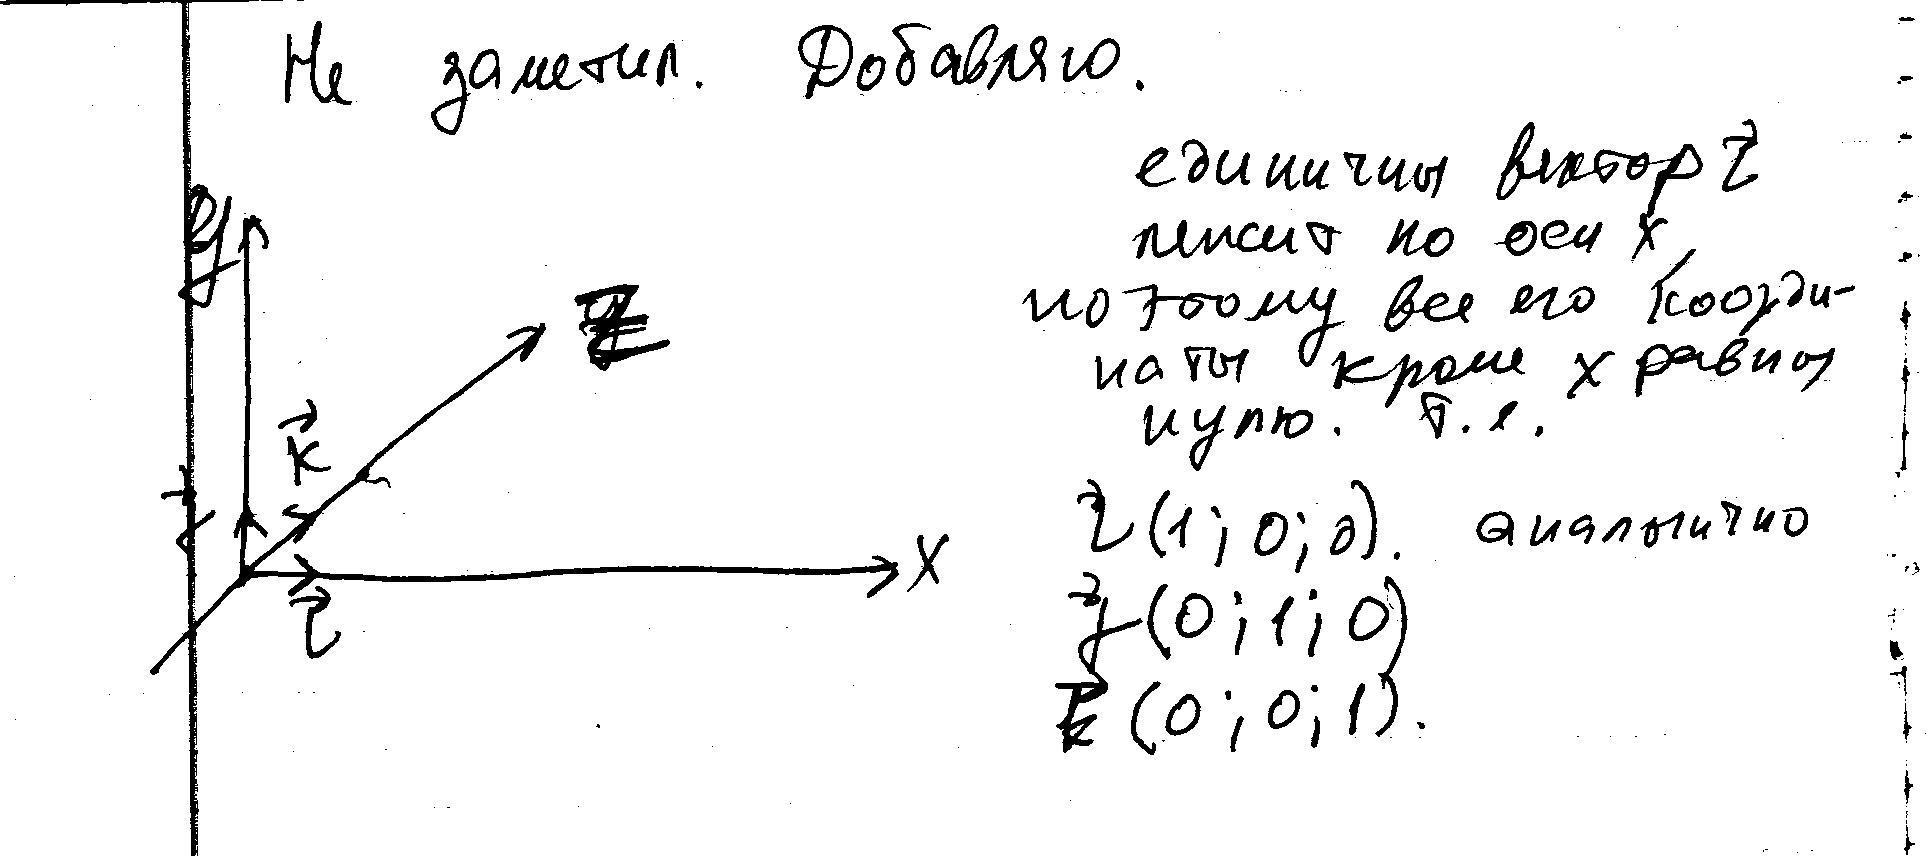 Не заметил. Добавляю.
единичны вектор i
лежит по оси x,
поэтому все его коорди-
наты кроме x равны
нулю. т.е.
i (1; 0; 0). аналогично
j (0; 1; 0)
k (0; 0; 1).
y
z
k
j
x
i